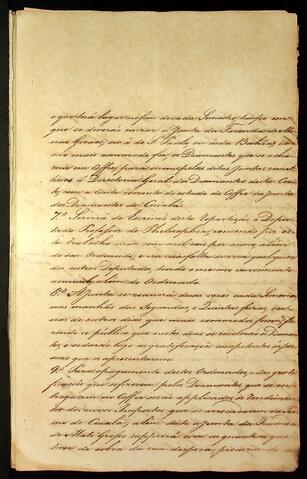 o que terá lugar no fim de cada Semestre, tempo em
que se deverão enviar á Junta da Fazenda de Mi
nas Geraes, ou á de S. Paulo ou á da Bahia, co
mo mais commodo for, os Diamantes que se acha
rem em Coffre, para serem pelas ditas Juntas remet
tidos á Directoria Geral dos Diamantes desta Cor
te, com a Conta corrente do estado do Coffre da Junta
dos Diamantes do Cuiabá.
7.º Servirá de Escrivão desta Repartição o Depu
tado Professor de Philosophia, vencendo por es
te trabalho mais cem mil reis por anno, alem
do seu Ordenado, e na sua falta servirá qualquer
dos outros Deputados, tendo o mesmo vencimento
annual, alem do Ordenado.
8.º A Junta se reunirá duas vezes cada Semana
nas manhãs das Segundas, e Quintas feiras, e na
mesma de outros dias que mais convenientes forem, fa
zendo-se publico que nestes dias se recebem os Diaman
tes, e se darão logo as gratificações competentes ás pes
soas que os apresentarem.
9.º Para o pagamento destes Ordenados, e das grati
ficações que se fizerem pelos Diamantes que se en
tregarem no Coffre serão applicados os rendimen
tos dos novos Impostos, que se arrecadarem na ci
ma do Cuiabá; alem disto a Junta da Fazenda
de Mato Grosso supprirá com as quantias que
tiver de sobra da sua despeza, procurando